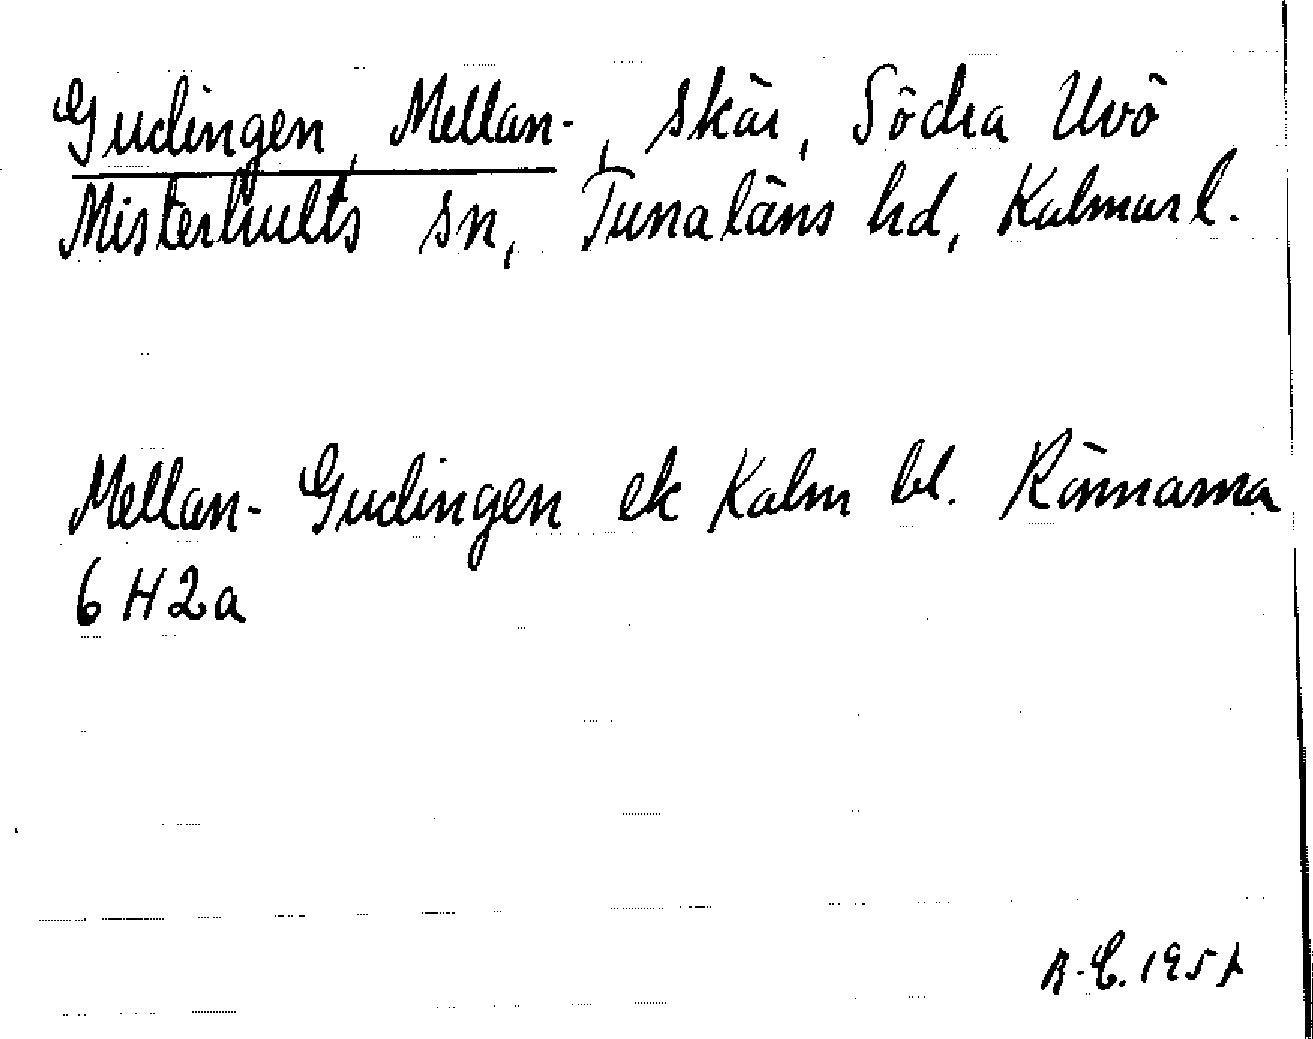 Gudingen, Mellan-, skär, Södra Uvö
Misterhults sn, Tunaläns hd, Kalmar l.
Mellan-Gudingen ek Kalm bl. Rönnarna
6 H 2 a